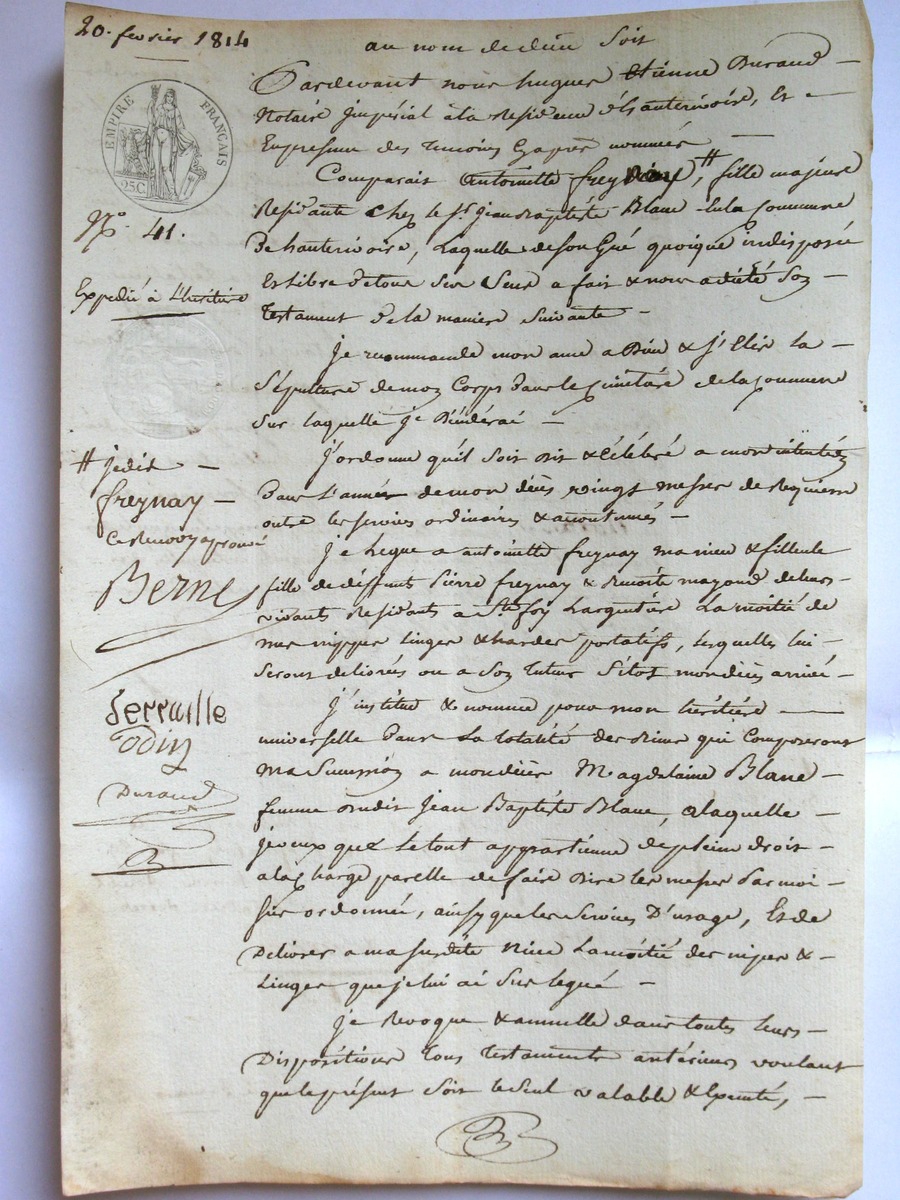 20. fevrier 1814
au nom de dieu soit
Pardevant nous hugues Etienne Duraud
Notaire Impérial à la Residence d'hauterivoire, Et
En presence des Temoins Cy apres nommés
EMPIRE FRANÇAIS
25C.
Comparait Antoinette freydiay #, fille majeure
Residante Chez le Sr. jean Baptiste Blanc en la Commune
N°. 41.
De hauterivoire, Laquelle de son Gré quoique indisposée
Expedié à L'heritiere
Et Libre de tous ses Sens a fait & nous a dicté Son
Testament De la maniere Suivante
Je recommande mon ame a Dieu & j'Elis la
Sépulture de mon Corps Dans le Cimitiére de la Commune
Sur laquelle je Décéderai
J'ordonne qu'il Soit dit & Célébré a mon intention
# je dit
freynay
Ce Renvoy aprouvé
Dans L'année de mon décès vingt messes de Requiem
outre les services ordinaires & accoutumés
Je Legue a antoinette freynay ma niece & filleule
Berne
fille de deffunts Pierre freynay & Benoite mayoud de leurs
vivants Residants a St. foy Largentière La moitié de
mes nippes Linges & hardes portatifs, lesquelles lui
Seront delivrés ou a Son tuteur Sitot mon décès arrivé
Ferraille
J'institue & nomme pour mon héritière
Odin
universelle Dans La totalité des Biens qui Composeront
Ma Succession a mon décès Magdelaine Blanc
Duraud
femme dudit Jean Baptiste Blanc, a laquelle
je veux que Le tout appartienne de plein droit
a la Charge par elle de faire Dire les messes Par moi
Sus ordonnée, ainsy que les Services D'usage, Et de
Delivrer a ma susdite Niece La moitié des nipes &
Linges que je lui ai Sus legué
Je Revoque & annulle dans toutes leurs
Dispositions Tous Testaments antérieurs voulant
que le présent Soit le Seul valable & Exécuté,